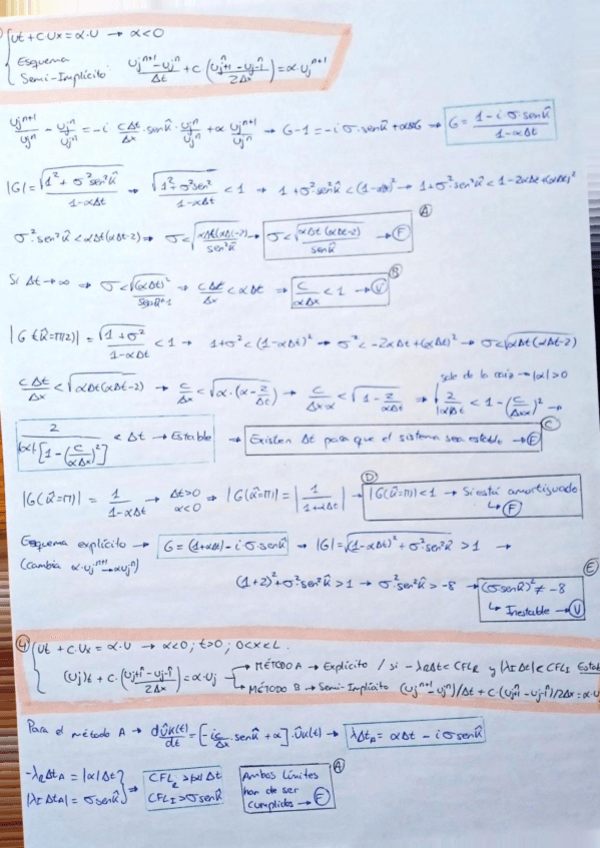 Ut + C Ux = α·U → α<0
Esquema
Semi-Implícito: (Uj^n+1 − Uj^n)/Δt + C (Uj+1^n − Uj-1^n)/2Δx = α·Uj^n+1
Uj^n+1/Uj^n − Uj^n/Uj^n = −i CΔt/Δx · sen k̂ · Uj^n/Uj^n + α Uj^n+1/Uj^n → G−1 = −i σ·sen k̂ + αΔtG → G = (1 − i σ·sen k̂)/(1−αΔt)
|G| = √(1² + σ²sen²k̂)/(1−αΔt) → √(1² + σ²sen²)/(1−αΔt) < 1 → 1+σ²sen²k̂ < (1−αΔt)² → 1+σ²·sen²k̂ < 1−2αΔt+(αΔt)²
A
σ²·sen²k̂ < αΔt(αΔt−2) → σ < √(αΔt(αΔt−2)/sen²k̂) → σ < √(αΔt(αΔt−2))/sen k̂ → F
B
Si Δt→∞ → σ < √(αΔt)² → CΔt/Δx < αΔt → C/αΔx < 1 → V
|G(k̂=π/2)| = √(1+σ²)/(1−αΔt) < 1 → 1+σ² < (1−αΔt)² → σ² < −2αΔt+(αΔt)² → σ < √(αΔt(αΔt−2))
sale de la raíz → |α|>0
CΔt/Δx < √(αΔt(αΔt−2)) → C/Δx < √(α·(α−2/Δt)) → C/Δxα < √(1−2/αΔt) → 2/|α|Δt < 1−(C/Δxα)² →
C
2/(|α|[1−(C/αΔx)²]) < Δt → Estable → Existen Δt para que el sistema sea estable → F
D
|G(k̂=π)| = 1/(1−αΔt) → Δt>0 α<0 → |G(k̂=π)| = |1/(1+αΔt)| → |G(k̂=π)|<1 → Si está amortiguado
↳ F
Esquema explícito → G = (1+αΔt) − i σ·sen k̂ → |G| = √((1−αΔt)² + σ²·sen²k̂) > 1 →
(cambia α·Uj^n+1 → αUj^n)
E
(1+2)² + σ²·sen²k̂ > 1 → σ²·sen²k̂ > −8 → (σ sen k̂)² ≠ −8
↳ Inestable → V
4 Ut + C·Ux = α·U → α<0; t>0; 0<x<L.
(Uj)t + C·(Uj+1^n − Uj-1^n)/2Δx = α·Uj
→ MÉTODO A → Explícito / si −λRΔt<CFLR y |λI Δt|<CFLI Estab
→ MÉTODO B → Semi-Implícito (Uj^n+1 − Uj^n)/Δt + C·(Uj+1^n − Uj-1^n)/2Δx = α·U
Para el método A → dûk(t)/dt = [−i C/Δx · sen k̂ + α]·ûk(t) → λΔtA = αΔt − i σ sen k̂
A
−λRΔtA = |α|Δt
|λI ΔtA| = σ sen k̂
→ CFLR > |α|Δt
CFLI > σ sen k̂
Ambos límites
han de ser
cumplidos → F